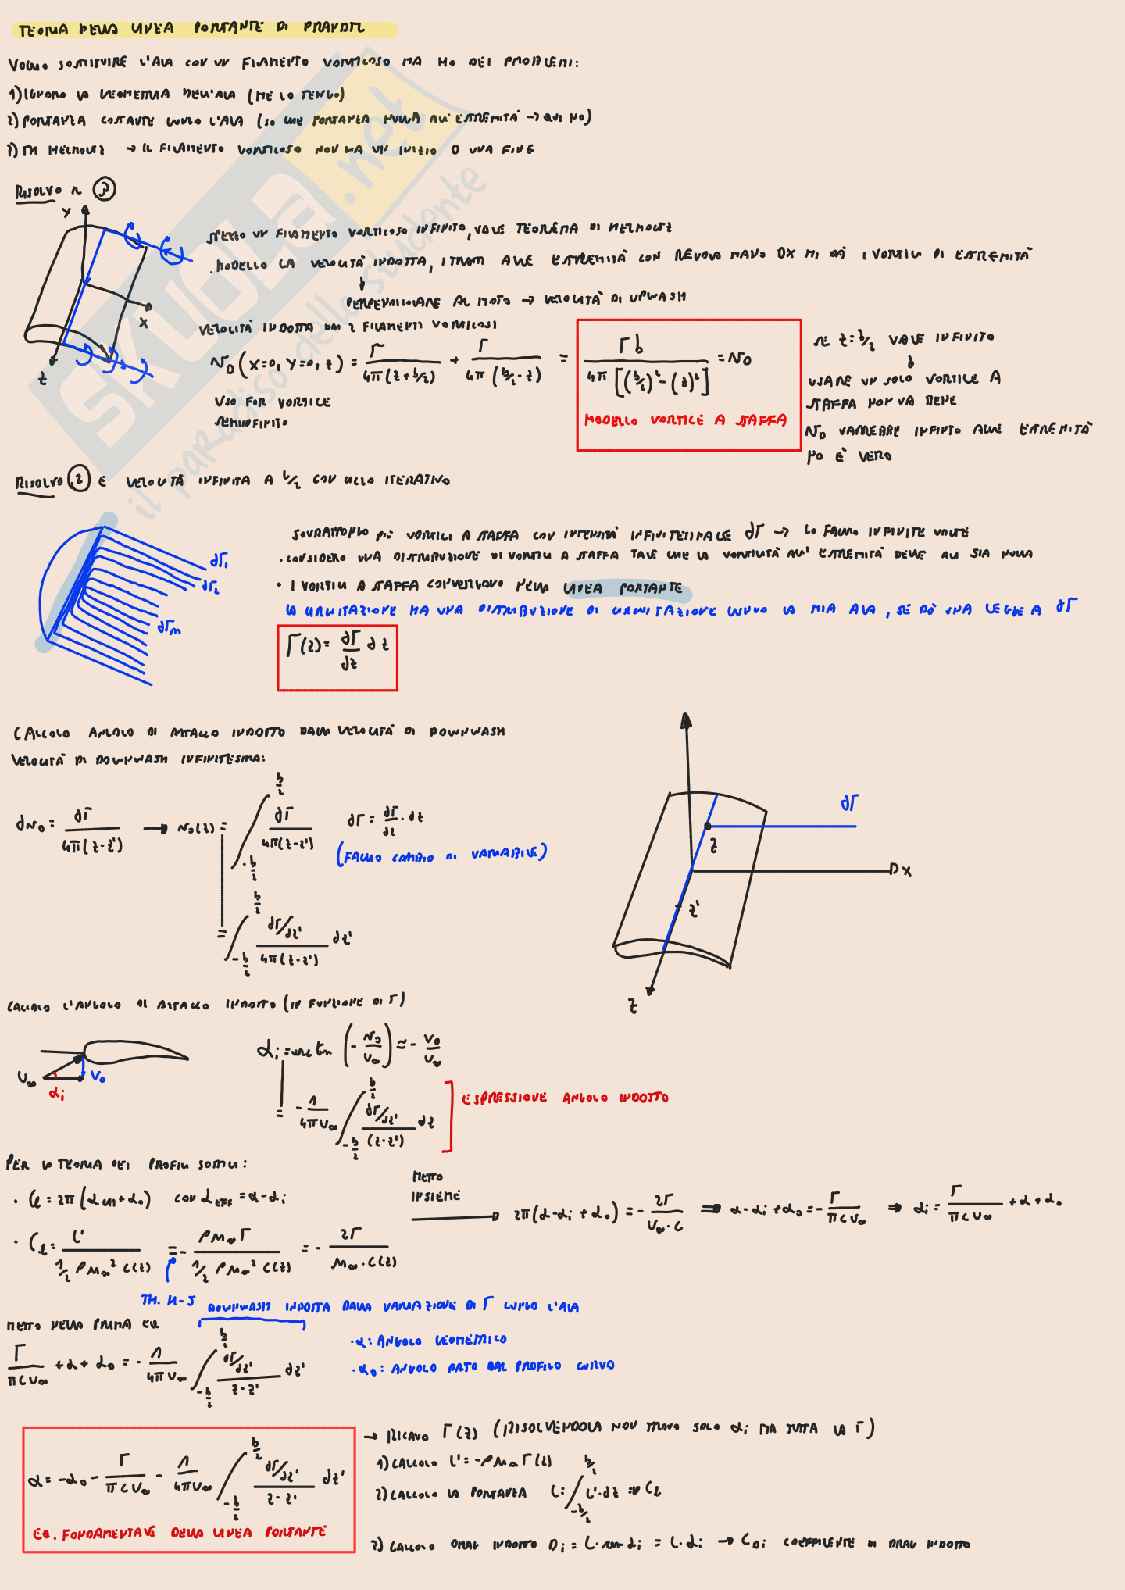 TEORIA DELLA LINEA PORTANTE DI PRANDTL
VOGLIO SOSTITUIRE L'ALA CON UN FILAMENTO VORTICOSO MA HO DEI PROBLEMI:
1) IGNORO LA GEOMETRIA DELL'ALA (ME LO TENGO)
2) PORTANZA COSTANTE LUNGO L'ALA (SO CHE PORTANZA NULLA ALL'ESTREMITÀ → QUI NO)
3) TH HELMOLTZ → IL FILAMENTO VORTICOSO NON HA UN INIZIO O UNA FINE
RISOLVO IL 3
SPEZZO UN FILAMENTO VORTICOSO INFINITO, VALE TEOREMA DI HELMOLTZ
. MODELLO LA VELOCITÀ INDOTTA, I TRATTI ALLE ESTREMITÀ CON REGOLA MANO DX MI DÀ I VORTICI DI ESTREMITÀ
PERPENDICOLARE AL MOTO → VELOCITÀ DI UPWASH
VELOCITÀ INDOTTA DAI 2 FILAMENTI VORTICOSI
y
x
z
N_D (X=0, Y=0, z) = Γ/4π(z+b/2) + Γ/4π(b/2-z) = Γb/4π[(b/2)²-(z)²] = N_D
USO FOR VORTICE
SEMINFINITO
MODELLO VORTICE A STAFFA
SE z=b/2 VALE INFINITO
USARE UN SOLO VORTICE A
STAFFA NON VA BENE
N_D VARREBBE INFINITO ALLE ESTREMITÀ
NO È VERO
RISOLVO 2 E VELOCITÀ INFINITA A b/2 CON ITERATIVO
SOVRAPPONGO PIÙ VORTICI A STAFFA CON INTENSITÀ INFINITESIMALE dΓ → LO FACCIO INFINITE VOLTE
. CONSIDERO UNA DISTRIBUZIONE DI VORTICI A STAFFA TALE CHE LA VORTICITÀ ALL'ESTREMITÀ DELLE ALI SIA NULLA
• I VORTICI A STAFFA CONVERGONO NELLA LINEA PORTANTE
LA CIRCUITAZIONE HA UNA DISTRIBUZIONE DI CIRCUITAZIONE LUNGO LA MIA ALA, SE DÒ UNA LEGGE A dΓ
dΓ1
dΓ2
dΓm
Γ(z) = dΓ/dz dz
CALCOLO ANGOLO DI ATTACCO INDOTTO DALLA VELOCITÀ DI DOWNWASH
VELOCITÀ DI DOWNWASH INFINITESIMA:
dN_D = dΓ/4π(z-z') → N_D(z) = ∫_{-b/2}^{b/2} dΓ/4π(z-z') dΓ = dΓ/dz · dz
(FACCIO CAMBIO DI VARIABILE)
= ∫_{-b/2}^{b/2} dΓ/dz' / 4π(z-z') dz'
dΓ
z
x
z'
z
CALCOLO L'ANGOLO DI ATTACCO INDOTTO (IN FUNZIONE DI Γ)
U∞
V_D
αi
αi = arctan (-N_D/U∞) ≈ -V_D/U∞
= -1/4πU∞ ∫_{-b/2}^{b/2} dΓ/dz' / (z-z') dz
ESPRESSIONE ANGOLO INDOTTO
PER LA TEORIA DEI PROFILI SOTTILI:
• Cl = 2π(α_eff+α0) CON α_eff = α-αi
METTO
INSIEME
→ 2π(α-αi+α0) = -2Γ/U∞·c ⇒ α-αi+α0 = -Γ/πcU∞ ⇒ αi = Γ/πcU∞ + α + α0
• Cl = L'/½ρM∞²c(z) = -ρM∞Γ/½ρM∞²c(z) = -2Γ/M∞·c(z)
TH. K-J
DOWNWASH INDOTTA DALLA VARIAZIONE DI Γ LUNGO L'ALA
METTO NELLA PRIMA EQ
Γ/πcU∞ + α + α0 = -1/4πU∞ ∫_{-b/2}^{b/2} dΓ/dz' / z-z' dz'
· α: ANGOLO GEOMETRICO
· α0: ANGOLO DATO DAL PROFILO CURVO
α = -α0 - Γ/πcU∞ - 1/4πU∞ ∫_{-b/2}^{b/2} dΓ/dz' / z-z' dz'
EQ. FONDAMENTALE DELLA LINEA PORTANTE
→ RICAVO Γ(z) (RISOLVENDOLA NON TROVO SOLO αi MA TUTTA LA Γ)
1) CALCOLO L' = -ρM∞Γ(z)
2) CALCOLO LA PORTANZA L = ∫_{-b/2}^{b/2} L'·dz ⇒ Cl
3) CALCOLO DRAG INDOTTO Di = L·sin αi = L·αi → C_Di COEFFICIENTE DI DRAG INDOTTO
SKUOLA.net
il paradiso dello studente